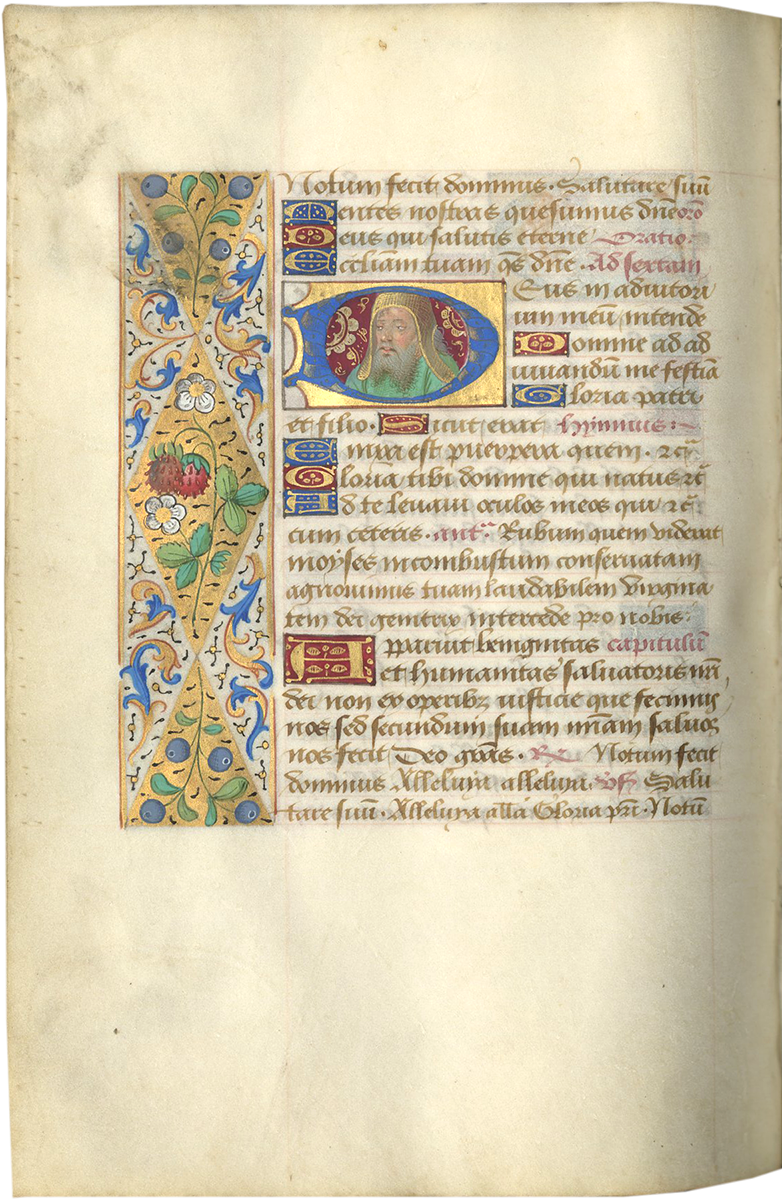 Notum fecit dominus · Salutare suū
Mentes nostras quesumus dn̄e orō
Deus qui salutis eterne Oratio ·
Eccl̄iam tuam qs̄ dn̄e · Ad sextam
Deus in adiutori
um meū intende
Domine ad ad
iuuandum me festīa
Gloria patri
et filio · Sicut erat hymnus :~
Enixa est puerpera quem · ⁊c̄
Gloria tibi domine qui natus ⁊c̄
Ad te leuaui oculos meos qui ⁊c̄ ·
cum ceteris · ant̄ · Rubum quem viderat
moyses incombustum conseruatam
agnouimus tuam laudabilem virgini
tem dei genitrix intercede pro nobis ·
Apparuit benignitas capitulū
et humanitas saluatoris nr̄i
dei non ex operibꝫ iusticie que fecimus
nos sed secundum suam mīam saluos
nos fecit Deo gr̄as · R⁊ Notum fecit
dominus Alleluya alleluya · Vs̄ Salu
tare suū · Alleluya all̄a Gloria pr̄i · Notū